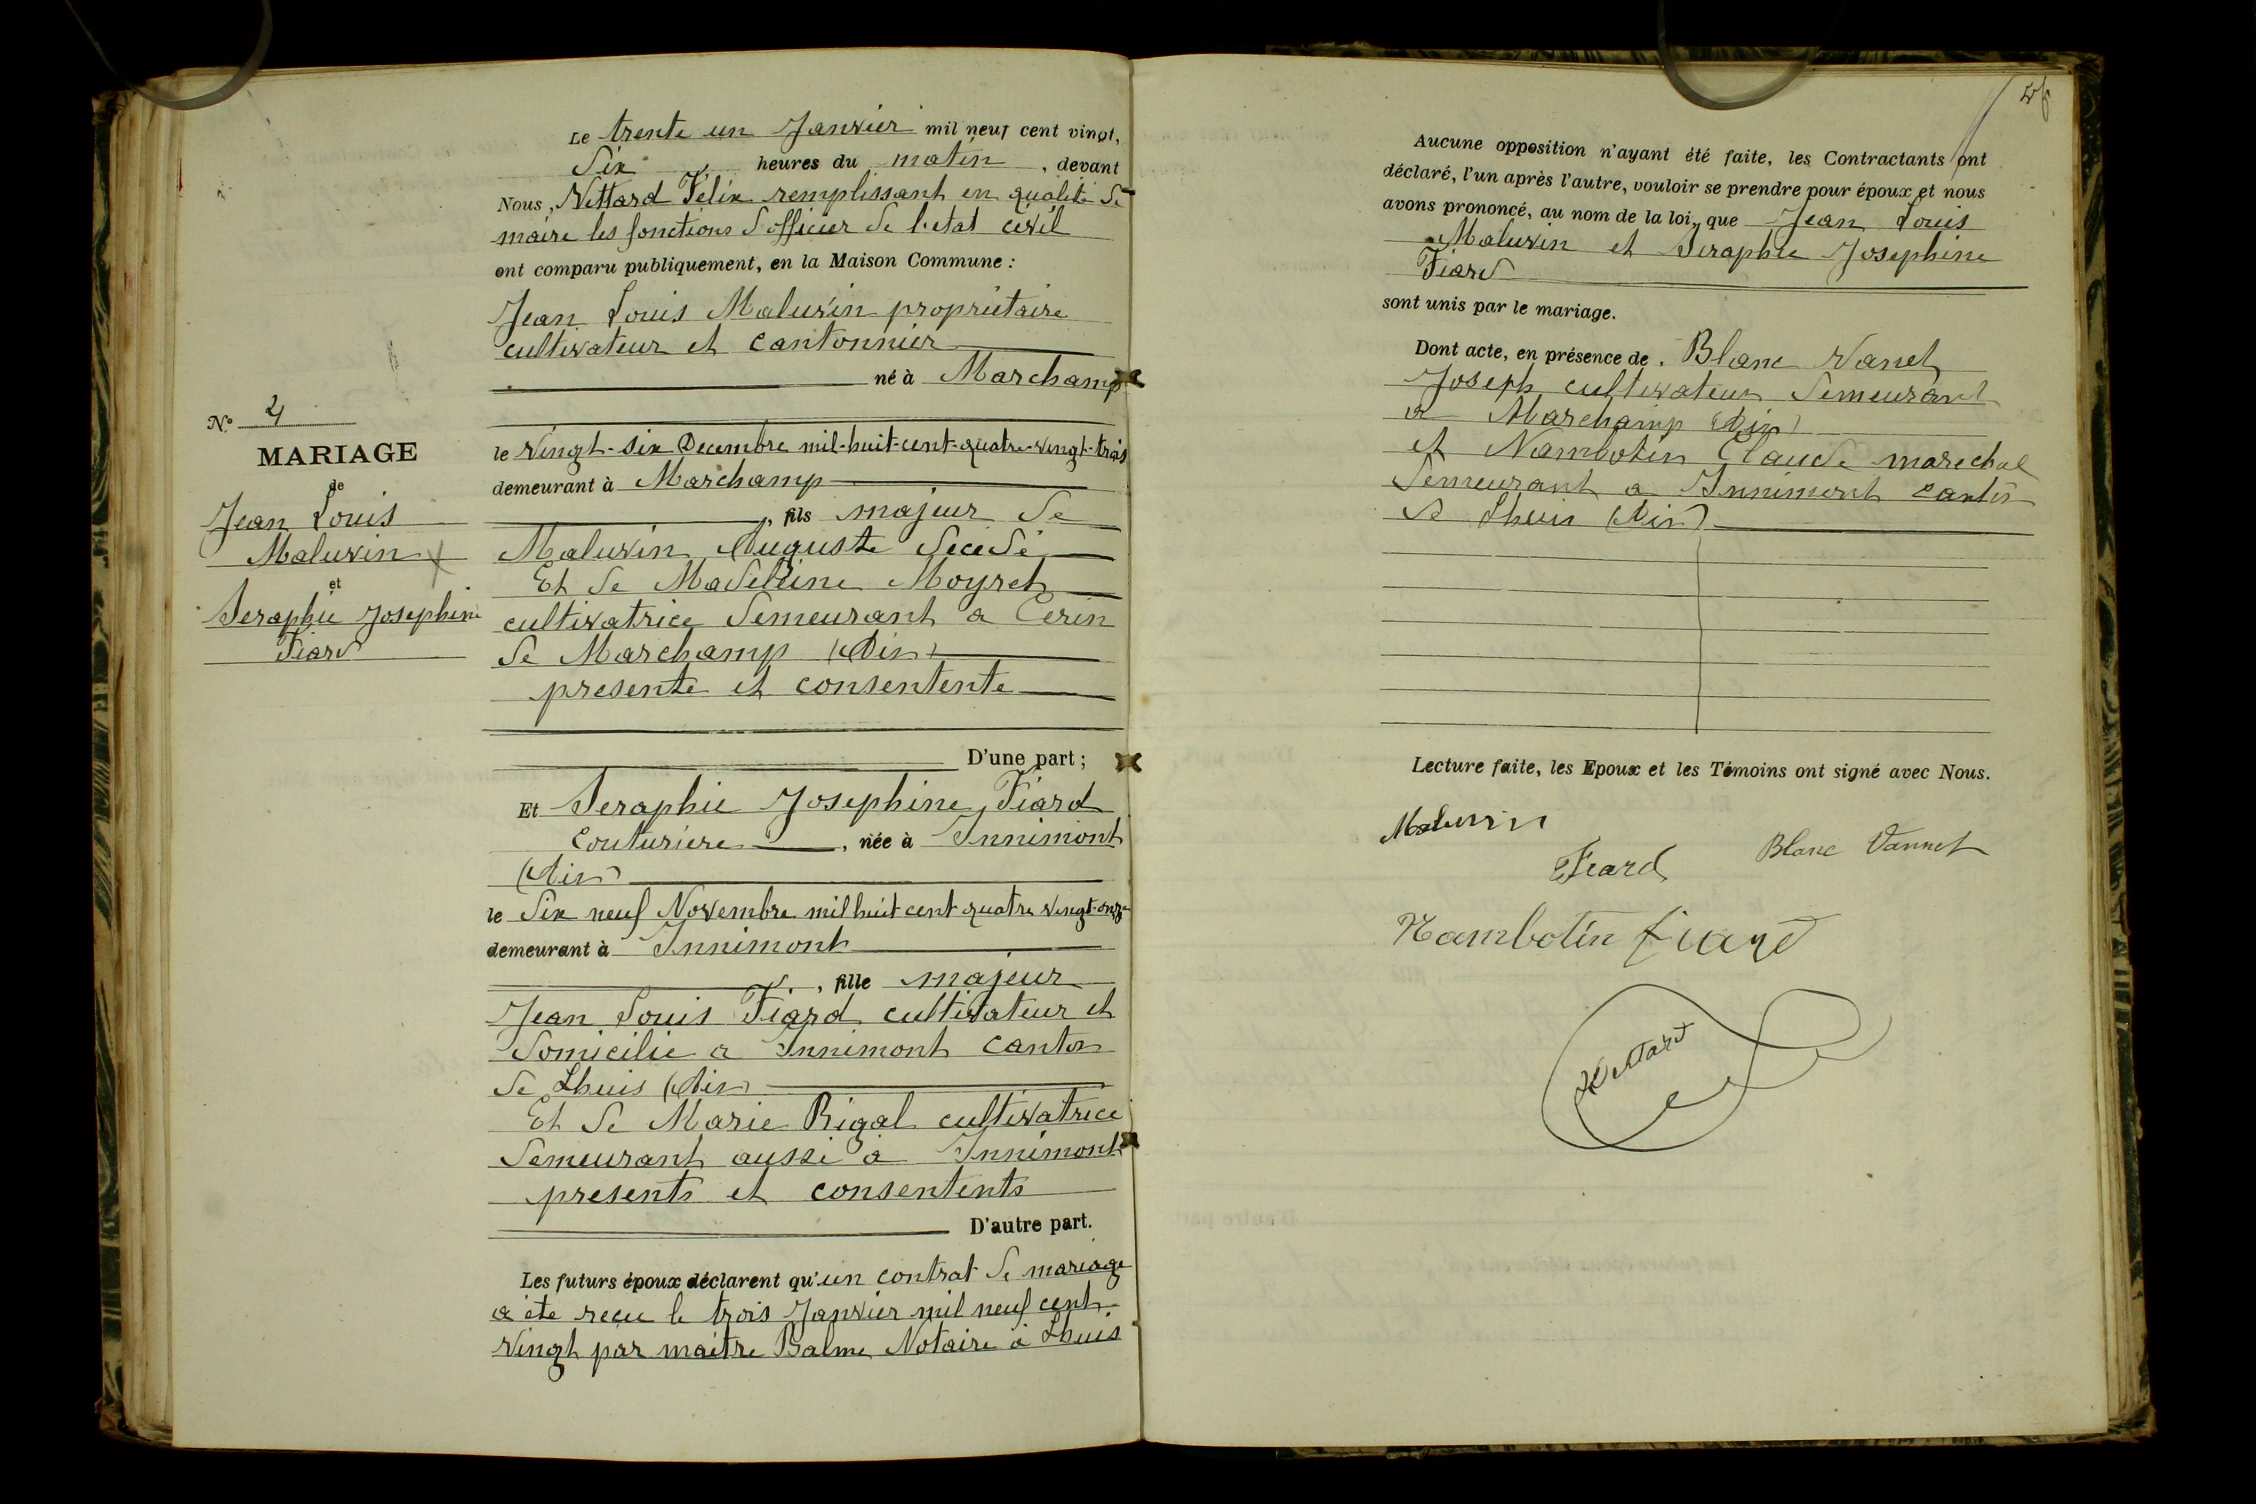 Le trente un Janvier mil neuf cent vingt,
dix heures du matin, devant
Nous, Vettard Félix remplissant en qualité de
maire les fonctions d'officier de l'état civil
ont comparu publiquement, en la Maison Commune :
Jean Louis Maluvin propriétaire
cultivateur et cantonnier
né à Marchamp
le vingt-six Decembre mil-huit-cent-quatre-vingt-trois
demeurant à Marchamp
, fils majeur de
Maluvin Auguste décédé
Et de Madeleine Moyret
cultivatrice demeurant a Cerin
de Marchamp (Ain)
presente et consentente
D'une part ;
N° 4
MARIAGE
de
Jean Louis
Maluvin
et
Seraphie Josephine
Fiard
Et Seraphie Josephine Fiard
couturiere, née à Innimont
(Ain)
le dix neuf Novembre mil huit cent quatre vingt-onze
demeurant à Innimont
, fille majeur
Jean Louis Fiard cultivateur et
domicilie a Innimont canton
de Lhuis (Ain)
Et de Marie Rigal cultivatrice
demeurant aussi à Innimont
presents et consentents
D'autre part.
Les futurs époux déclarent qu'un contrat de mariage
a été reçu le trois Janvier mil neuf cent
vingt par maitre Balme Notaire à Lhuis
Aucune opposition n'ayant été faite, les Contractants ont
déclaré, l'un après l'autre, vouloir se prendre pour époux et nous
avons prononcé, au nom de la loi, que Jean Louis
Maluvin et Seraphie Josephine
Fiard
sont unis par le mariage.
Dont acte, en présence de. Blanc Vanet
Joseph cultivateur demeurant
a Marchamp (Ain)
et Nambotin Claude marechal
demeurant a Innimont canton
de Lhuis (Ain)
Lecture faite, les Epoux et les Témoins ont signé avec Nous.
Maluvin
Fiard
Blanc Vannet
Nambotin fiard
Vettard